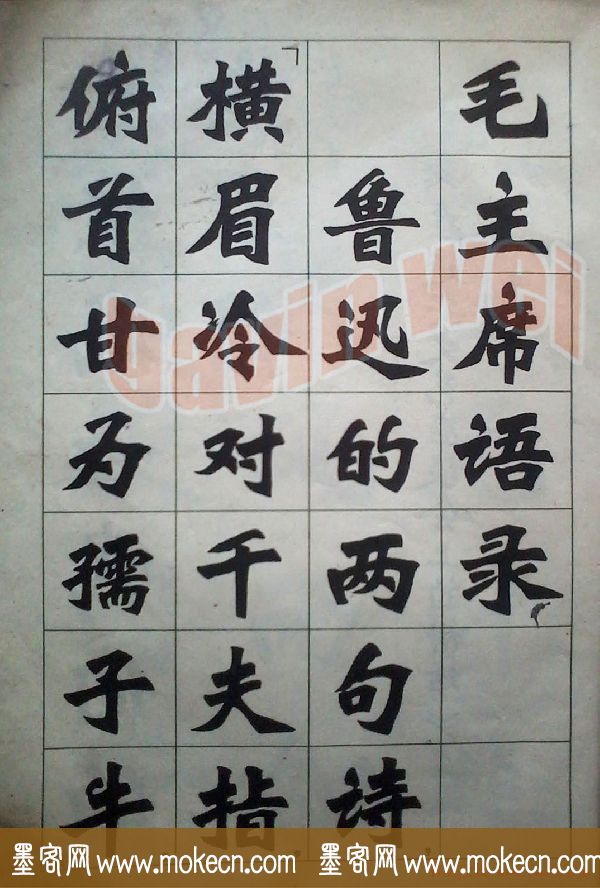 毛主席语录
鲁迅的两句诗
「横眉冷对千夫指
俯首甘为孺子牛
Gavin wei
墨客网 www.mokecn.com 墨客网 www.mokecn.com